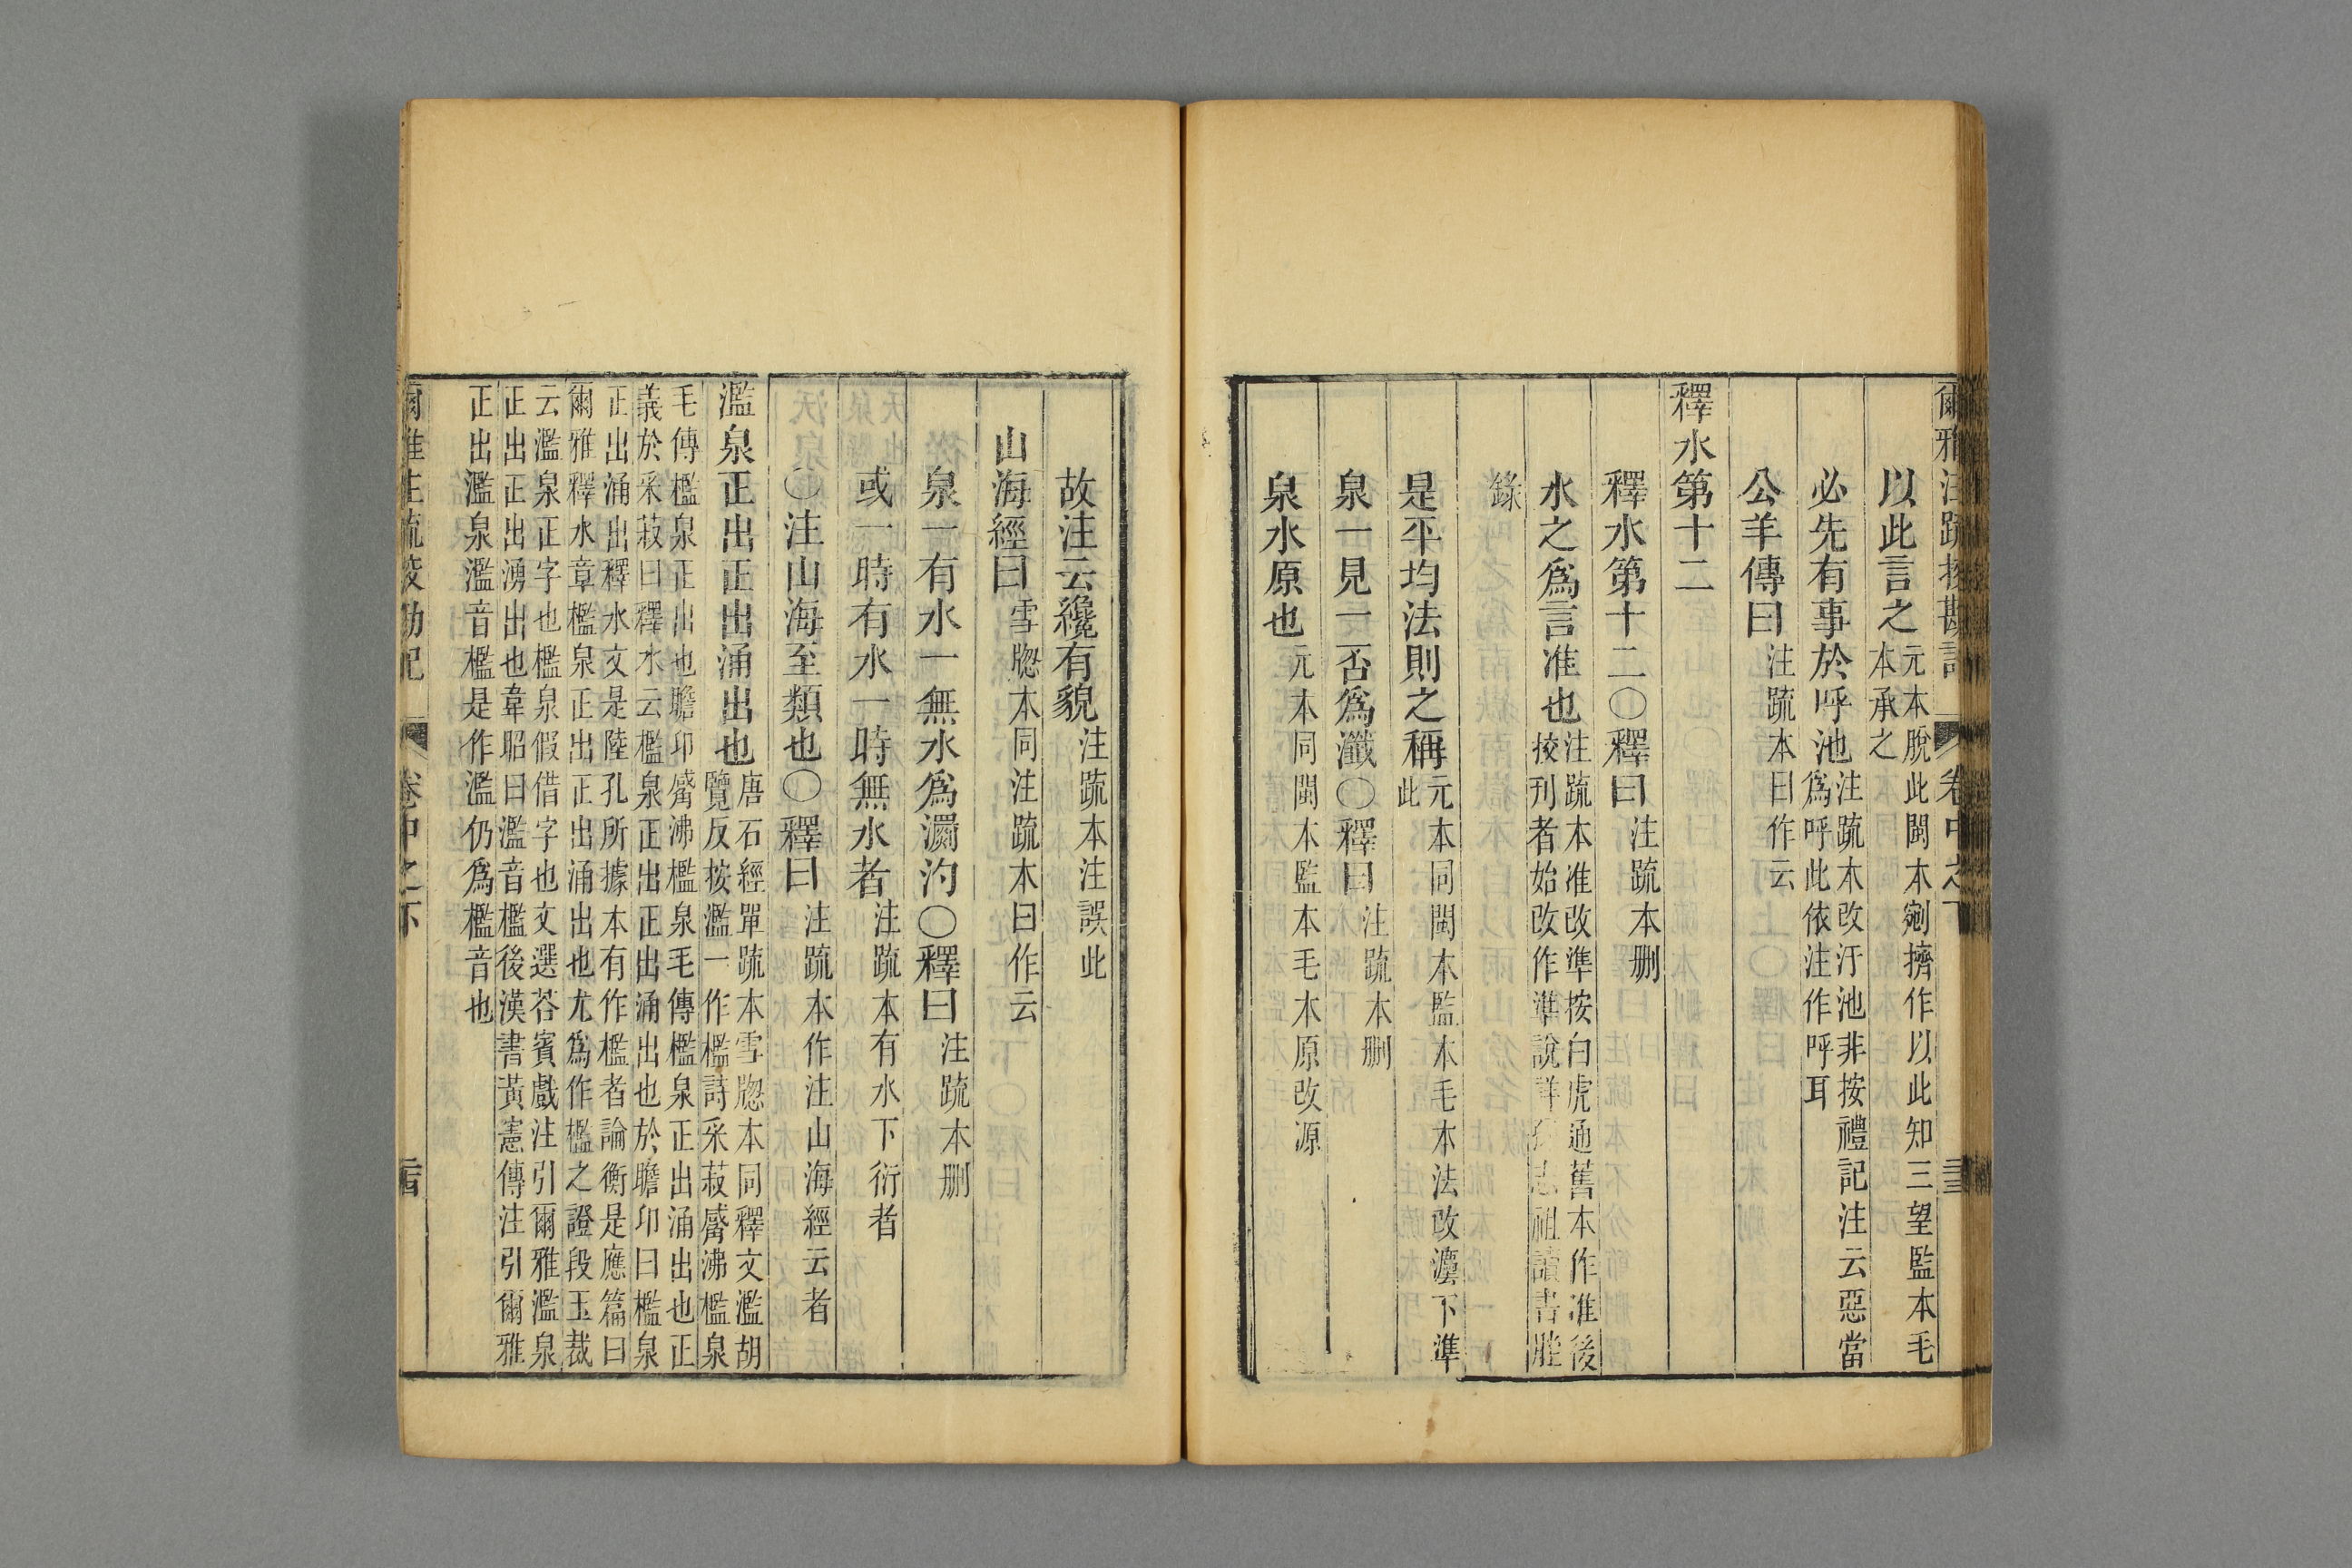 爾雅注疏挍勘記 卷中之下 三十三
以此言之元本脫此閩本剜擠作以此知三望監本毛
本承之
必先有事於呼池注疏本改汙池非按禮記注云惡當
爲呼此依注作呼耳
公羊傳曰注疏本曰作云
釋水第十二
釋水第十二〇釋曰注疏本刪
水之爲言准也注疏本准改準按白虎通舊本作准後
挍刊者始改作準說詳孫志祖讀書脞
錄
是平均法則之稱元本同閩本監本毛本法改灋下準
此
泉一見一否爲瀸〇釋曰注疏本刪
泉水原也元本同閩本監本毛本原改源
故注云纔有貌注疏本注誤此
山海經曰雪牕本同注疏本曰作云
泉一有水一無水爲瀱汋〇釋曰注疏本刪
或一時有水一時無水者注疏本有水下衍者
〇注山海至類也〇釋曰注疏本作注山海經云者
濫泉正出正出涌出也唐石經單疏本雪牕本同釋文濫胡
覽反按濫一作檻詩采菽觱沸檻泉
毛傳檻泉正出也瞻卬觱沸檻泉毛傳檻泉正出涌出也正
義於采菽曰釋水云檻泉正出正出涌出也於瞻卬曰檻泉
正出涌出釋水文是陸孔所據本有作檻者論衡是應篇曰
爾雅釋水章檻泉正出正出涌出也尤爲作檻之證段玉裁
云濫泉正字也檻泉假借字也文選荅賓戲注引爾雅濫泉
正出正出湧出也韋昭曰濫音檻後漢書黃憲傳注引爾雅
正出濫泉濫音檻是作濫仍爲檻音也
爾雅注疏挍勘記 卷中之下 三十四